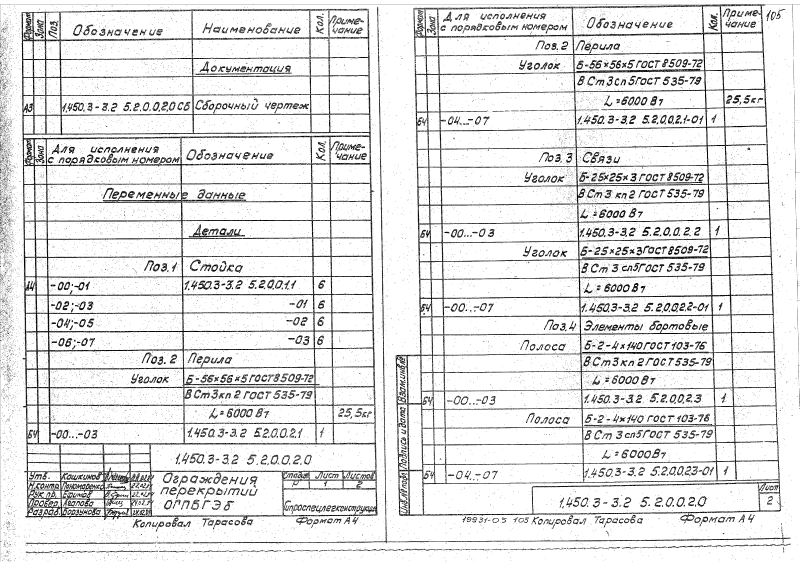 Формат Зона Поз. Обозначение Наименование Кол. Приме-чание
Документация
А3 1.450.3-3.2 5.2.0.0.2.0 СБ Сборочный чертеж
Формат Зона Для исполнения с порядковым номером Обозначение Кол. Приме-чание
Переменные данные
Детали
Поз.1 Стойка
А4 -00;-01 1.450.3-3.2 5.2.0.0.1.1 6
-02;-03 -01 6
-04;-05 -02 6
-06;-07 -03 6
Поз. 2 Перила
Уголок Б-56×56×5 ГОСТ 8509-72
В Ст 3 кп 2 ГОСТ 535-79
L=6000 Вт 25,5кг
Б4 -00...-03 1.450.3-3.2 5.2.0.0.2.1 1
1.450.3-3.2 5.2.0.0.2.0
Утв. Кашкимов
Н.контр. Пономаренко
Рук. пр. Ефимов
Провер. Агапова
Разраб. Борзунова
Ограждения
перекрытий
ОГПБГЭб
Стадия Лист Листов
Р 1 2
Гипроспецлегконструкция
Копировал Тарасова Формат А4
105
Формат Зона Для исполнения с порядковым номером Обозначение Кол. Приме-чание
Поз. 2 Перила
Уголок Б-56×56×5 ГОСТ 8509-72
В Ст 3 сп 5 ГОСТ 535-79
L=6000 Вт 25,5кг
Б4 -04...-07 1.450.3-3.2 5.2.0.0.2.1-01 1
Поз. 3 Связи
Уголок Б-25×25×3 ГОСТ 8509-72
В Ст 3 кп 2 ГОСТ 535-79
L=6000 Вт
Б4 -00...-03 1.450.3-3.2 5.2.0.0.2.2 1
Уголок Б-25×25×3 ГОСТ 8509-72
В Ст 3 сп5 ГОСТ 535-79
L=6000 Вт
Б4 -00...-07 1.450.3-3.2 5.2.0.0.2.2-01 1
Поз.4 Элементы бортовые
Полоса Б-2-4×140 ГОСТ 103-76
В Ст 3 кп 2 ГОСТ 535-79
L=6000 Вт
Б4 -00...-03 1.450.3-3.2 5.2.0.0.2.3 1
Полоса Б-2-4×140 ГОСТ 103-76
В Ст 3 сп5 ГОСТ 535-79
L=6000 Вт
Б4 -04...-07 1.450.3-3.2 5.2.0.0.2.3-01 1
Инв.№ подл. Подпись и дата Взам.инв.№
1.450.3-3.2 5.2.0.0.2.0
Лист
2
19931-05 105 Копировал Тарасова Формат А4